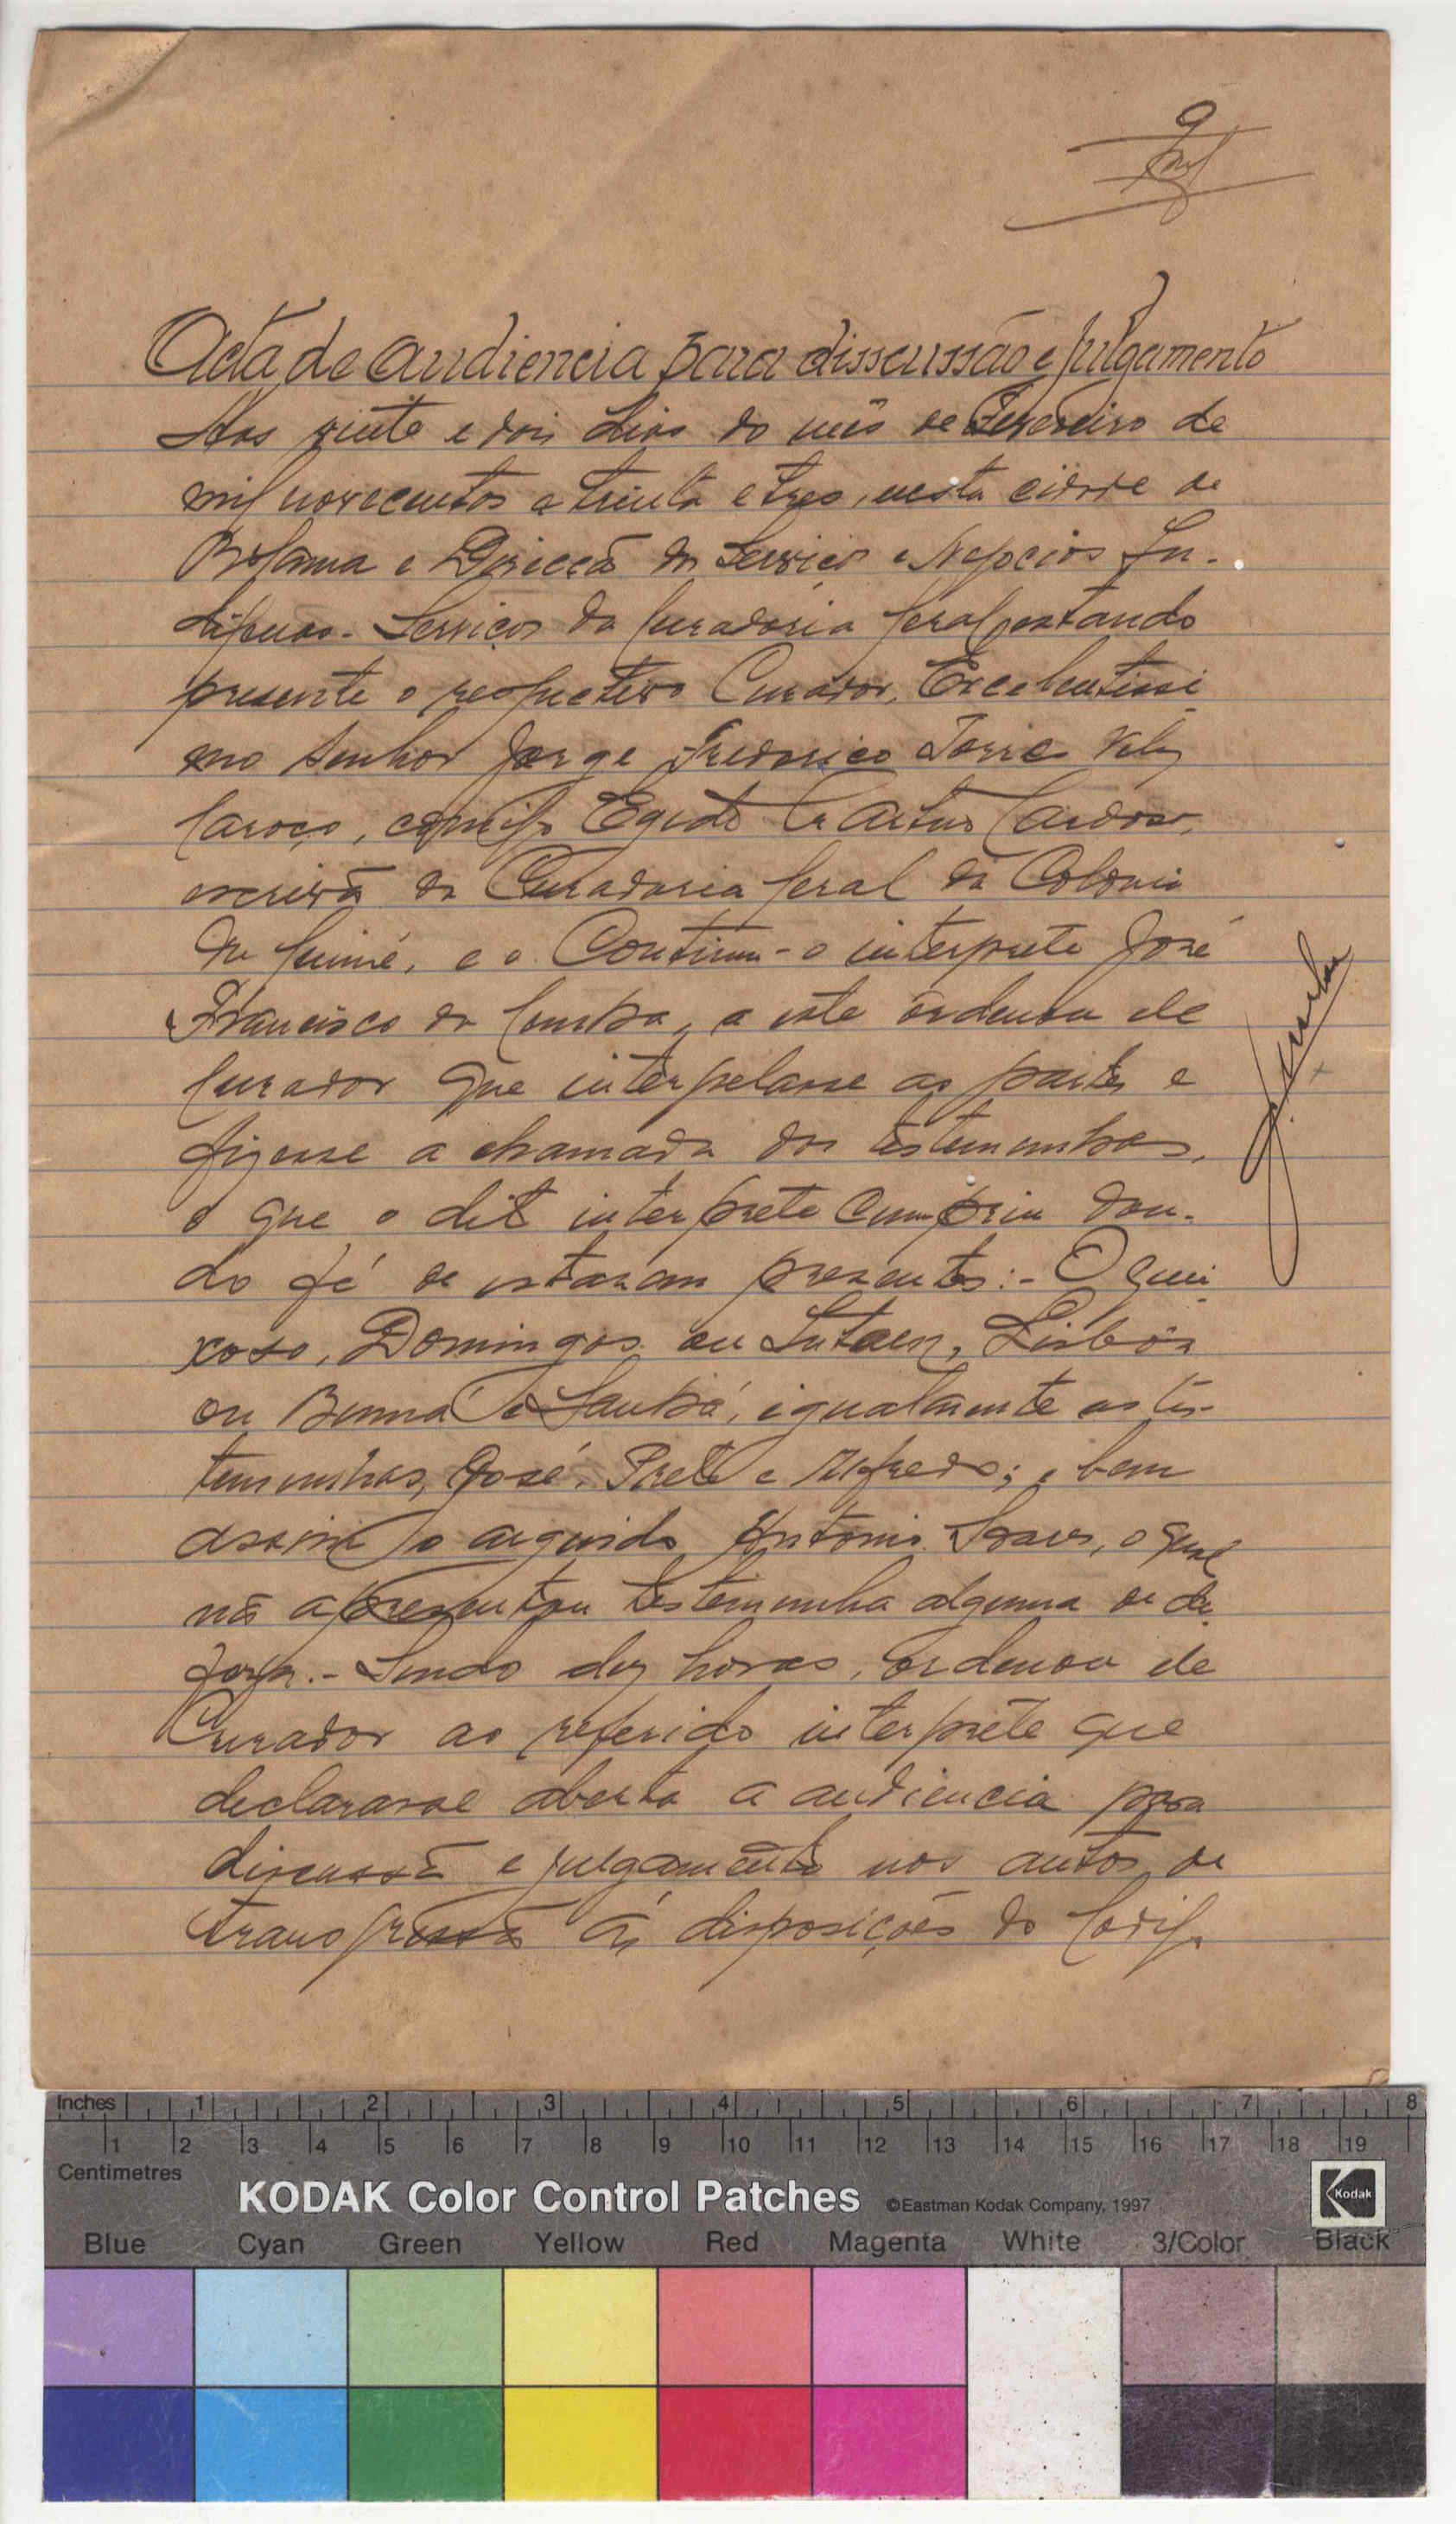 9
Acta de audiencia para disscussão e julgamento
Aos vinte e dois dias do mês de Fevereiro de
mil novecentos e trinta e tres, nesta cidade de
Bolama e Direcção dos Serviços e Negocios In-
digenas. Serviços da Curadoria Geral, estando
presente o respectivo Curador, Excelentissi
mo Senhor Jorge Frederico Torres Velez
Caroço, comigo Egidio Artur Cardoso,
escrivã da Curadoria Geral da Colonia
da Guiné, e o Continuo-o interprete José
Francisco da, a este ordenou ele
Curador que interpelasse as partes e
fizesse a chamada das testemunhas,
o que o dito interprete cumpriu dan-
do fé de estarem presentes:- O quei
xoso, Domingos ou, Lisbôa
ou, igualmente as tes-
temunhas, José, Preto e Alfredo; e bem
assim o arguido Antonio Soares, o qual
nã apresentou testemunha alguma de de
feza.- Sendo dez horas, ordenou ele
Curador ao referido interprete que
declarasse aberta a audiencia para
discussã e julgamento nos autos de
transgressã ás disposições do Codigo
Inches 1 2 3 4 5 6 7 8
1 2 3 4 5 6 7 8 9 10 11 12 13 14 15 16 17 18 19
Centimetres
KODAK Color Control Patches ©Eastman Kodak Company, 1997 Kodak
Blue Cyan Green Yellow Red Magenta White 3/Color Black